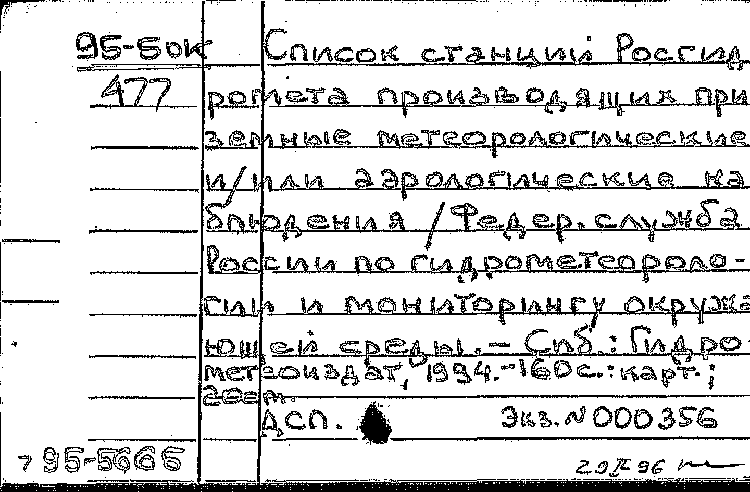 95-5ок Список станций Росгид
477 ромета производящих при
земные метеорологические
и/или аэрологические на
блюдения / Федер. служба
России по гидрометеороло-
гии и мониторингу окружа
ющей среды. - Спб.: Гидро
метеоиздат, 1994.-160с.: карт.;
20см.
ДСП. Экз. N 000356
95-5665
29 II 96